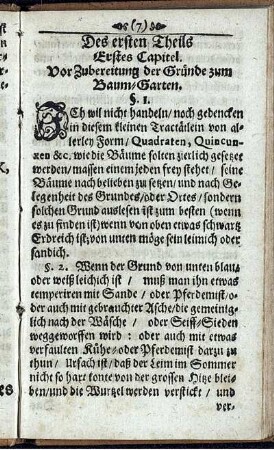 (7)
Des ersten Theils
Erstes Capitel.
Vor Zubereitung der Gründe zum
Baum-Garten.
§. 1.
ICh wil nicht handeln/noch gedencken
in diesem kleinen Tractätlein von al-
lerley Form/Quadraten, Quincun-
xen &c. wie die Bäume solten zierlich gesetzet
werden/massen einem jeden frey stehet/ seine
Bäume nach belieben zu setzen/und nach Ge-
legenheit des Grundes/oder Ortes/sondern
solchen Grund auslesen ist zum besten (wenn
es zu finden ist)wenn von oben etwas schwartz
Erdreich ist;von unten möge sein leimich oder
sandich.
§. 2. Wenn der Grund von unten blau/
oder weiß leichich ist / muß man ihn etwas
temperiren mit Sande / oder Pferdemist/o-
der auch mit gebrauchter Asche/die gemeinig-
lich nach der Wäsche / oder Seiff-Sieden
weggeworffen wird : oder auch mit etwas
verfaulten Kühe-oder Pferdemist darzu zu
thun / Ursach ist/daß der Leim im Sommer
nicht so hart konte von der grossen Hitze blei-
ben/und die Wurtzel werden verstickt / und
ver-